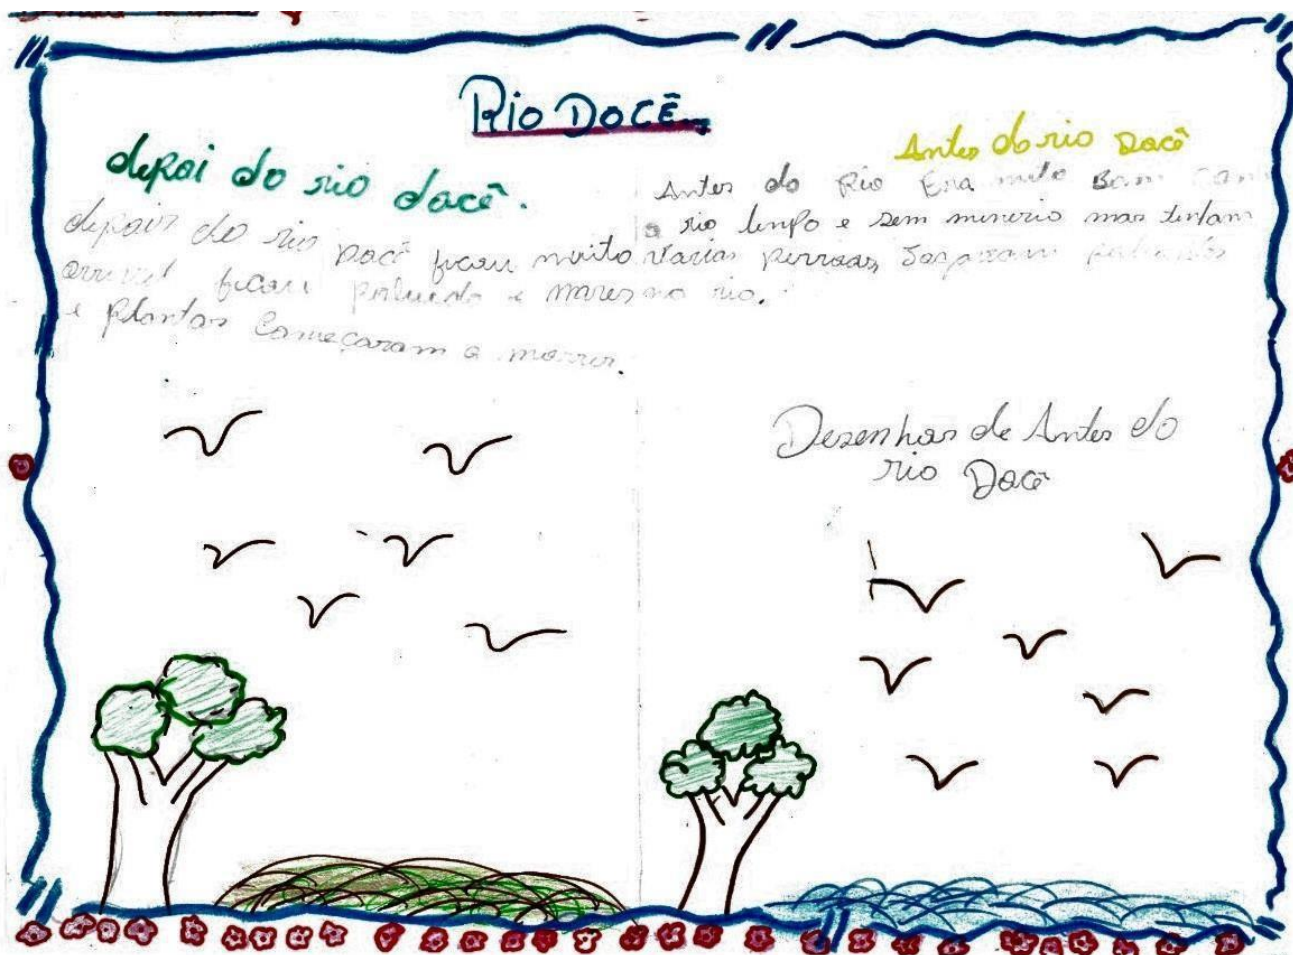 Rio Docê
depoi do rio docê.
depois do rio Docê ficou muito
ficou poluido e mares
e Plantas Começaram a morrer.
Antes do rio Docê
Antes do Rio Era muito Bom
o rio linpo e sem minerio mas tinham
varias pessoas
no rio.
Desenhos de Antes do
rio Docê